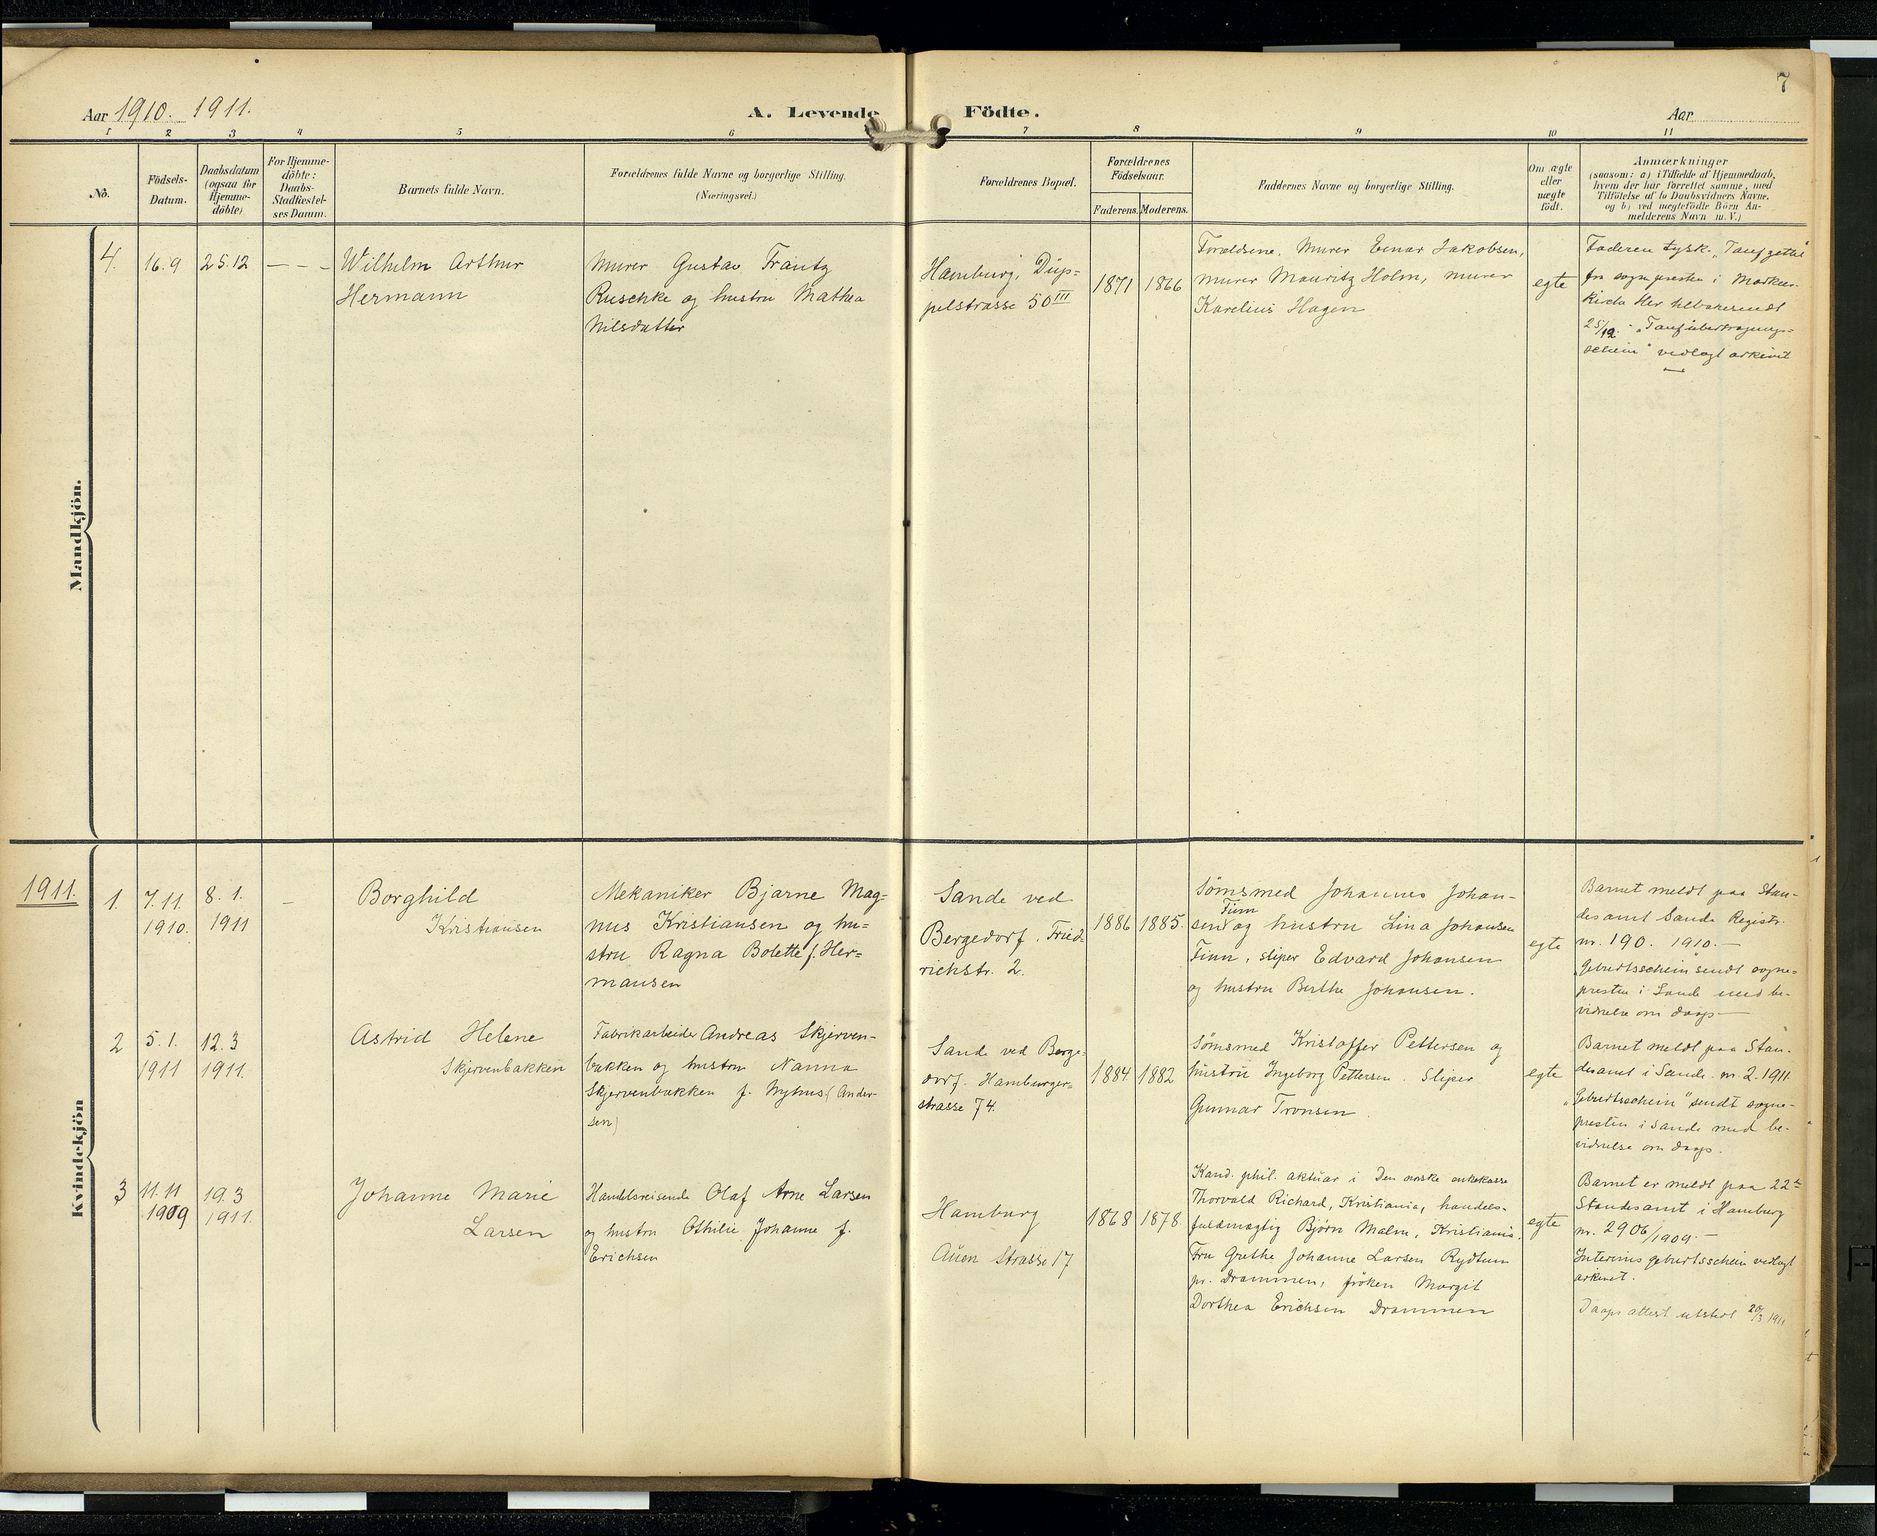 7
Aar 1910. 1911.
A. Levende Födte.
Aar
1 2 3 4 5 6 7 8 9 10 11
No.
Födsels-
Datum.
Daabsdatum
(ogsaa for
Hjemme-
döbte)
For Hjemme-
döbte:
Daabs-
Stadfæstel-
ses Datum.
Barnets fulde Navn.
Forældrenes fulde Navne og borgerlige Stilling.
(Næringsvei.)
Forældrenes Bopæl.
Forældrenes
Födselsaar.
Faderens. Moderens.
Faddernes Navne og borgerlige Stilling.
Om ægte
eller
uægte
födt.
Anmærkninger
(saasom: a) i Tilfælde af Hjemmedaab,
hvem der har forrettet samme, med
Tilföielse af to Daabsvidners Navne,
og b) ved uægtefödte Börn An-
melderens Navn m. V.)
Mandkjön.
4. 16.9 25.12 — — —
Wilhelm Arthur
Hermann
Murer Gustav Frantz
Ruschke og hustru Mathea
Nilsdatter
Hamburg, Düp-
pelstrasse 50 III
1871 1866
Forældrene, Murer Einar Jakobsen,
murer Mauritz Holm, murer
Karelius Hagen
egte
Faderen tysk.
fra sognepresten i
25/12 - "Taufübertragungs-
schein" vedlagt arkivet
Kvindekjön
1911.
1. 7.11.
1910.
8.1.
1911
-
Borghild
Kristiansen
Mekaniker Bjarne Mag-
nus Kristiansen og hu-
stru Ragna Bolette f. Her-
mansen
Sande ved
Bergedorf, Fried-
richstr. 2.
1886 1885.
Sømsmed Johannes Johan-
sen Finn og hustru Lina Johansen
Finn, sliper Edvard Johansen
og hustru Berthe Johansen.
egte
Barnet meldt paa Stan-
desamt Sande Registr.
nr. 190. 1910. —
"Geburtsschein" sendt sogne-
presten i Sande med be-
vidnelse om daap —
2 5.1.
1911
12.3
1911.
Astrid Helene
Skjervenbakken
Fabrikarbeider Andreas Skjerven-
bakken og hustru Nanna
Skjervenbakken f. Nyhus (Ander-
sen)
Sande ved Berge-
dorf. Hamburger-
strasse 74.
1884 1882
Sømsmed Kristoffer Pettersen og
hustru Ingeborg Pettersen. Sliper
Gunnar Tronsen.
egte
Barnet meldt paa Stan-
desamt i Sande nr. 2. 1911.
"Geburtsschein" sendt sogne-
presten i Sande med be-
vidnelse om daap.
3 11.11
1909
19.3
1911.
Johanne Marie
Larsen
Handelsreisende Olaf Arne Larsen
og hustru Othilie Johanne f.
Erichsen
Hamburg
Auen Strasse 17
1868 1878.
Kand. phil. aktuar i Den norske enkekasse
Thorvald Richard, Kristiania, handels-
fuldmægtig Bjørn Malm, Kristiania.
Fru Grethe Johanne Larsen Rydtun
pr. Drammen, frøken Margit
Dorthea Erichsen Drammen
egte
Barnet er meldt paa 22de
Standesamt i Hamburg
nr. 2906/1909. —
Interims geburtsschein vedlagt
arkivet.
Daapsattest utstedt 20/3 1911